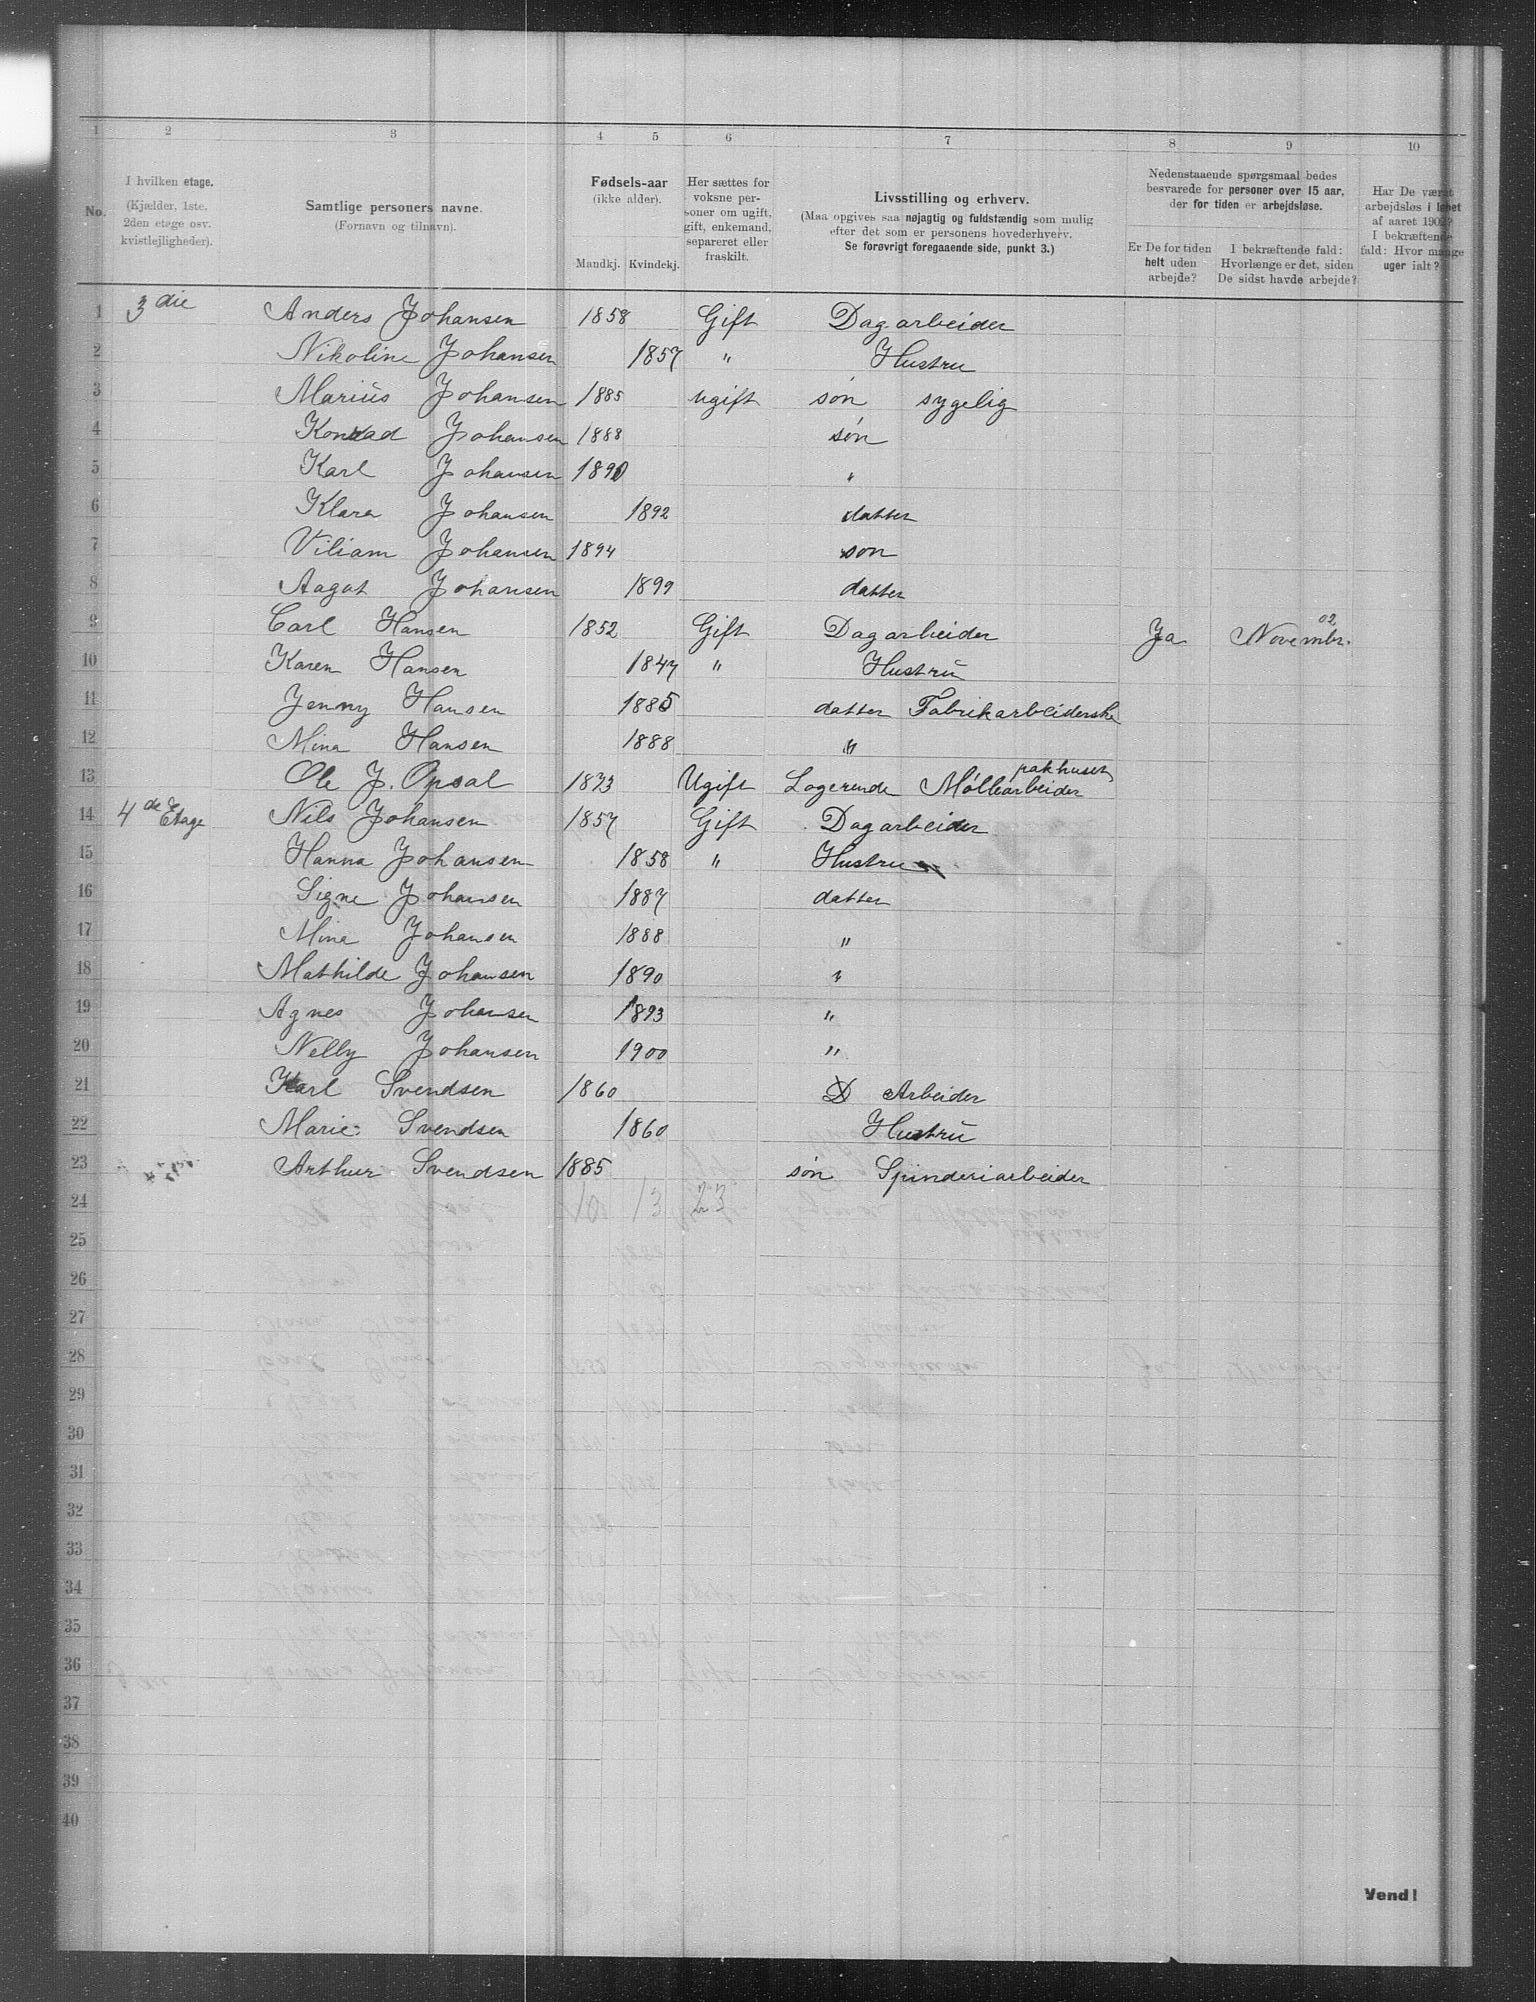 1 2 3 4 5 6 7 8 9 10
No.
I hvilken etage.
(Kjælder, 1ste.
2den etage osv.
kvistlejligheder).
Samtlige personers navne.
(Fornavn og tilnavn).
Fødsels-aar
(ikke alder).
Mandkj. Kvindekj.
Her sættes for
voksne per-
soner om ugift,
gift, enkemand,
separeret eller
fraskilt.
Livsstilling og erhverv.
(Maa opgives saa nøjagtig og fuldstændig som mulig
efter det som er personens hovederhverv.
Se forøvrigt foregaaende side, punkt 3.)
Nedenstaaende spørgsmaal bedes
besvarede for personer over 15 aar,
der for tiden er arbejdsløse.
Er De for tiden
helt uden
arbejde?
I bekræftende fald:
Hvorlænge er det, siden
De sidst havde arbejde?
Har De været
arbejdsløs i løbet
af aaret 1902?
I bekræftende
fald: Hvor mange
uger ialt?
1 3die Anders Johansen 1858 Gift Dagarbeider
2 Nikoline Johansen 1857 " Hustru
3 Marius Johansen 1885 ugift søn sygelig
4 Konrad Johansen 1888 søn
5 Karl Johansen 1890 "
6 Klara Johansen 1892 datter
7 Viliam Johansen 1894 søn
8 Aagot Johansen 1899 datter
9 Carl Hansen 1852 Gift Dagarbeider Ja Novembr. 02
10 Karen Hansen 1847 " Hustru
11 Jenny Hansen 1885 datter Fabrikarbeiderske
12 Mina Hansen 1888 "
13 Ole J. Opsal 1873 Ugift Logerende Møllearbeider pakhuset
14 4de Etage Nils Johansen 1857 Gift Dagarbeider
15 Hanna Johansen 1858 " Hustru
16 Signe Johansen 1887 datter
17 Mina Johansen 1888 "
18 Mathilde Johansen 1890 "
19 Agnes Johansen 1893 "
20 Nelly Johansen 1900 "
21 Karl Svendsen 1860 D Arbeider
22 Marie Svendsen 1860 Hustru
23 Arthur Svendsen 1885 søn Spinderiarbeider
24 10 13 23
25
26
27
28
29
30
31
32
33
34
35
36
37
38
39
40
Vend!